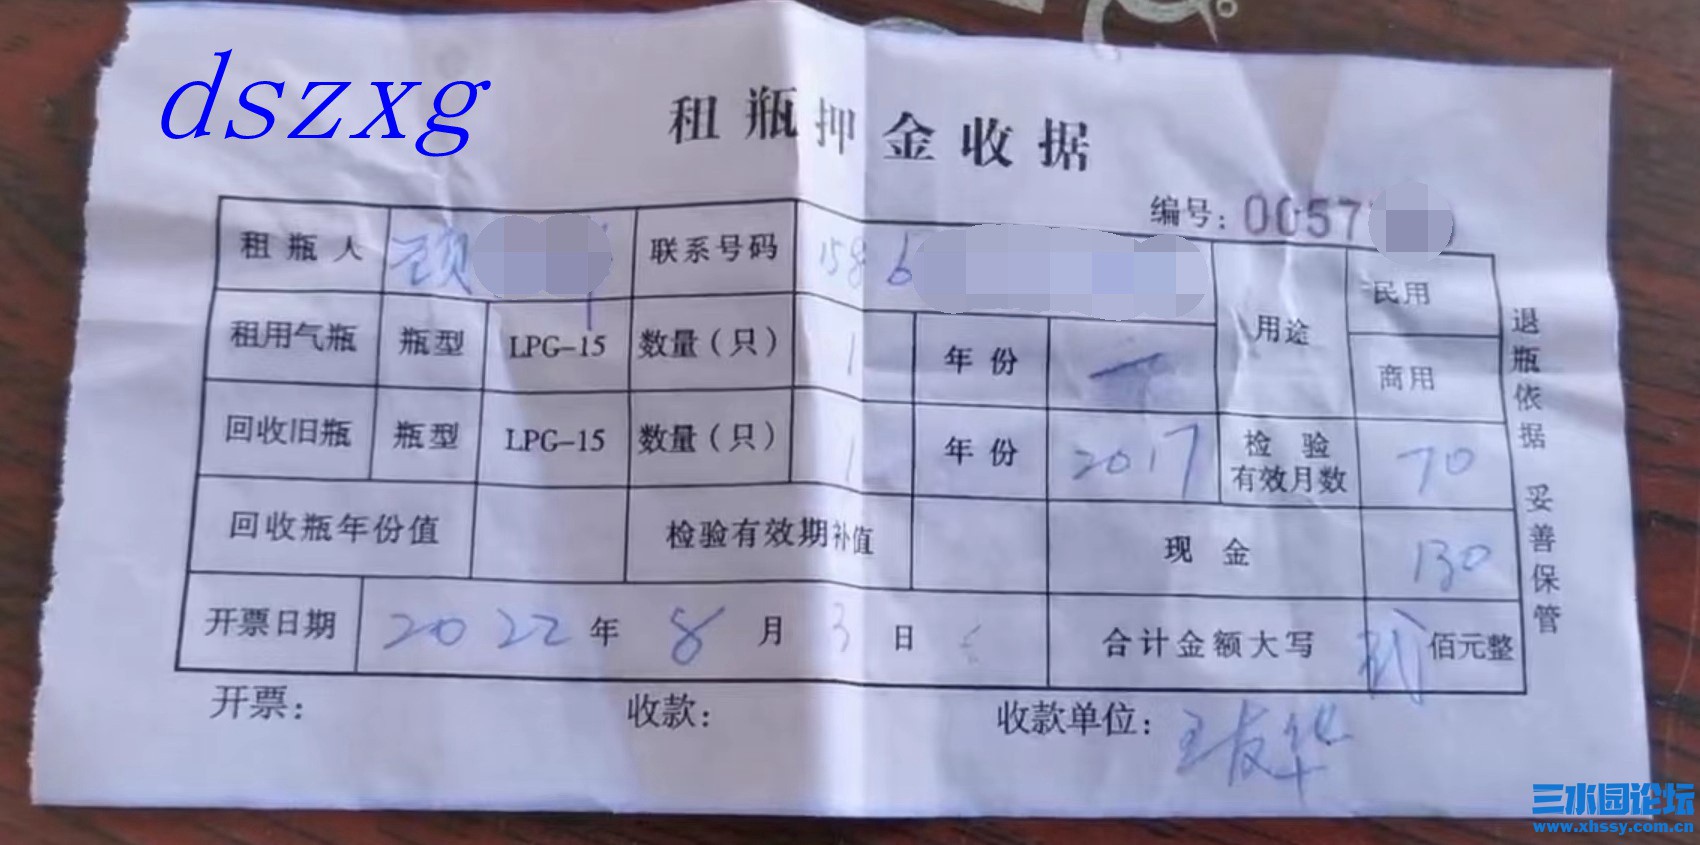 dszxg
租瓶押金收据
编号：0057
租瓶人 顾 联系号码 1586 用途 民用
租用气瓶 瓶型 LPG-15 数量（只） 1 年份 商用
回收旧瓶 瓶型 LPG-15 数量（只） 1 年份 2017 检验有效月数 70
回收瓶年份值 检验有效期补值 现金 130
开票日期 2022年8月3日 合计金额大写 贰佰元整
开票： 收款： 收款单位：王友华
退瓶依据 妥善保管
三水园论坛
www.xhssy.com.cn